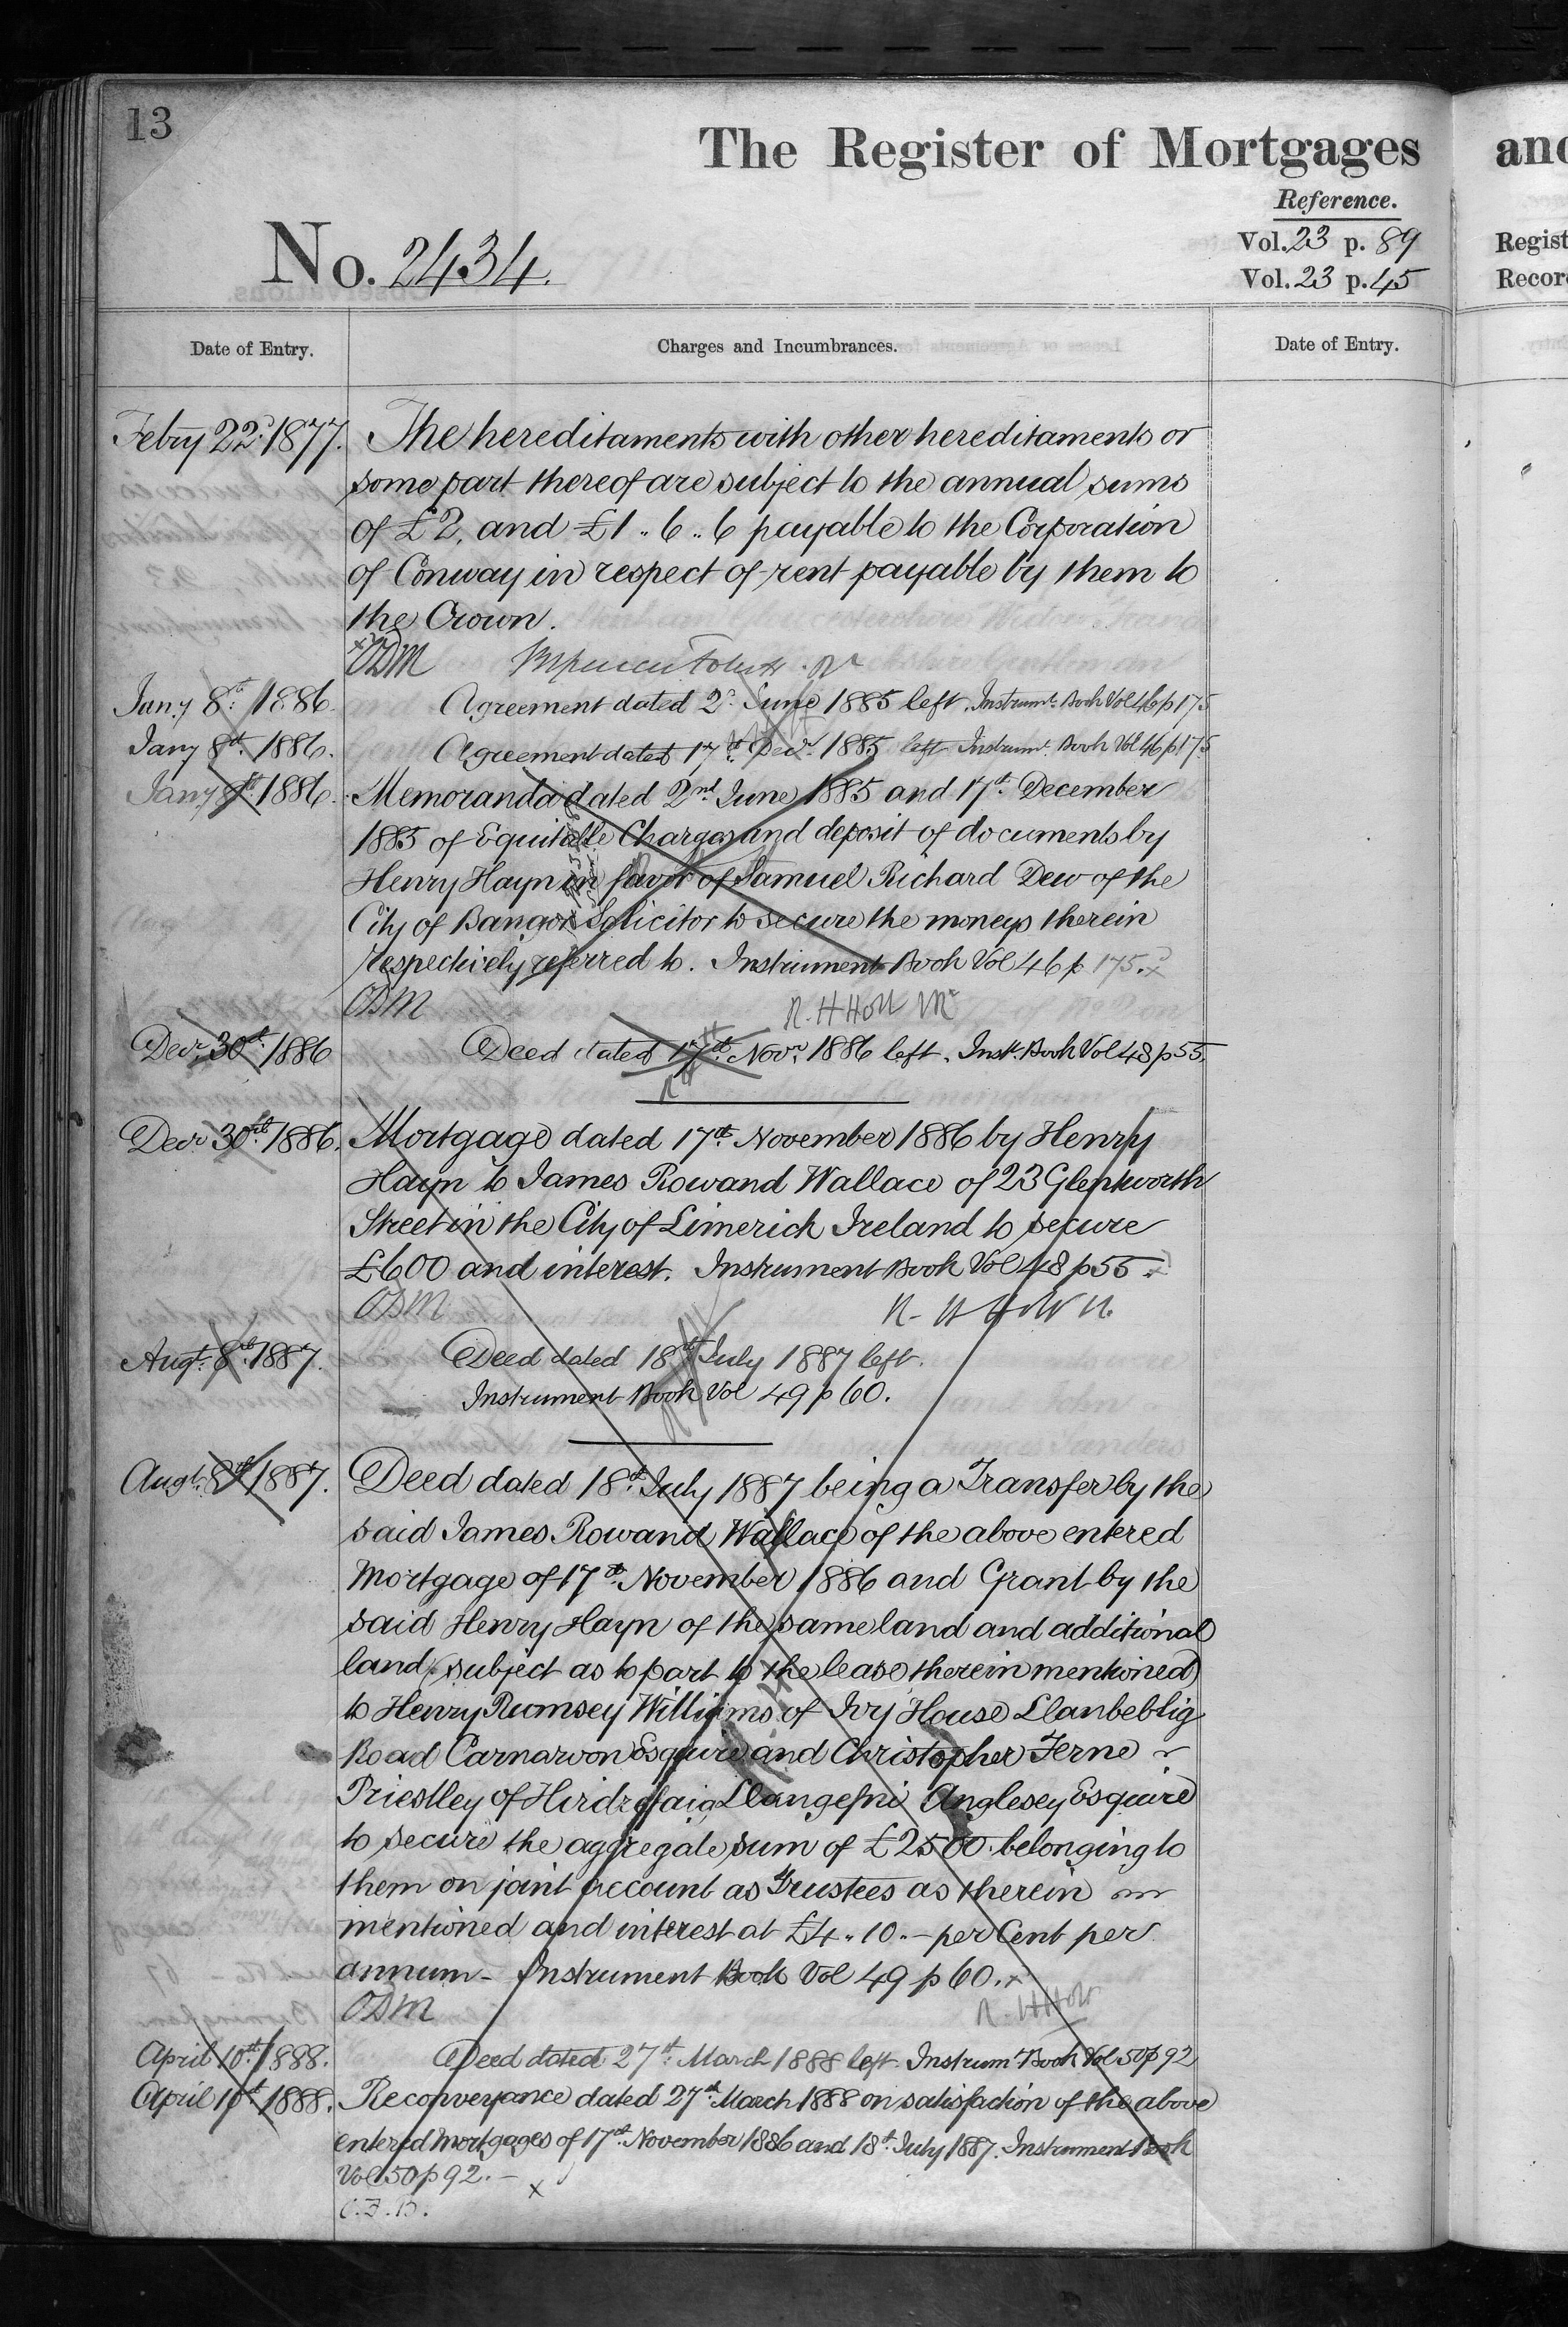 13
The Register of Mortgages
and
Reference.
No. 2434.
Vol. 23 p. 89
Vol. 23 p. 45
Regist
Record
Date of Entry.
Charges and Incumbrances.
Date of Entry.
Febry 22d. 1877. The hereditaments with other hereditaments or
some part thereof are subject to the annual sums
of £2, and £1 .. 6 .. 6 payable to the Corporation
of Conway in respect of rent payable by them to
the Crown.
ODM
Jany 8th. 1886. Agreement dated 2d. June 1885 left. Instrumt. Book Vol 46 p 175
Jany 8th. 1886. Agreement dated 17th. Decr. 1885 left Instrumt. Book Vol 46 p 175
Jany 8th 1886. Memoranda dated 2nd. June 1885 and 17th. December
1885 of Equitable Charges and deposit of documents by
Henry Hayn in favor of Samuel Richard Dew of the
City of Bangor Solicitor to secure the moneys therein
respectively referred to. Instrument Book Vol 46 p 175.
ODM
R. H Holt
Decr. 30th. 1886 Deed dated 17th. Novr. 1886 left. Inst. Book Vol 48 p 55.
Decr. 30th. 1886. Mortgage dated 17th. November 1886 by Henry
Hayn to James Rowand Wallace of 23 Glentworth
Street in the City of Limerick Ireland to secure
£600 and interest. Instrument Book Vol 48 p 55.
ODM
R. H Holt
Augt. 8th. 1887. Deed dated 18th July 1887 left.
Instrument Book Vol 49 p 60.
Augt. 8th 1887. Deed dated 18th. July 1887 being a Transfer by the
said James Rowand Wallace of the above entered
Mortgage of 17th. November 1886 and Grant by the
said Henry Hayn of the same land and additional
land (subject as to part to the lease therein mentioned)
to Henry Rumsey Williams of Ivy House Llanbeblig
Road Carnarvon Esquire and Christopher Ferne
Priestley of Hirdrefaig Llangefni Anglesey Esquire
to secure the aggregate sum of £2500 belonging to
them on joint account as Trustees as therein
mentioned and interest at £4 .. 10 .. – per Cent per
annum – Instrument Book Vol 49 p 60.
ODM
R. H Holt
April 10th. 1888. Deed dated 27th. March 1888 left. Instrumt. Book Vol 50 p 92
April 10th 1888. Reconveyance dated 27th. March 1888 on satisfaction of the above
entered Mortgages of 17th. November 1886 and 18th. July 1887. Instrument Book
Vol 50 p 92. –